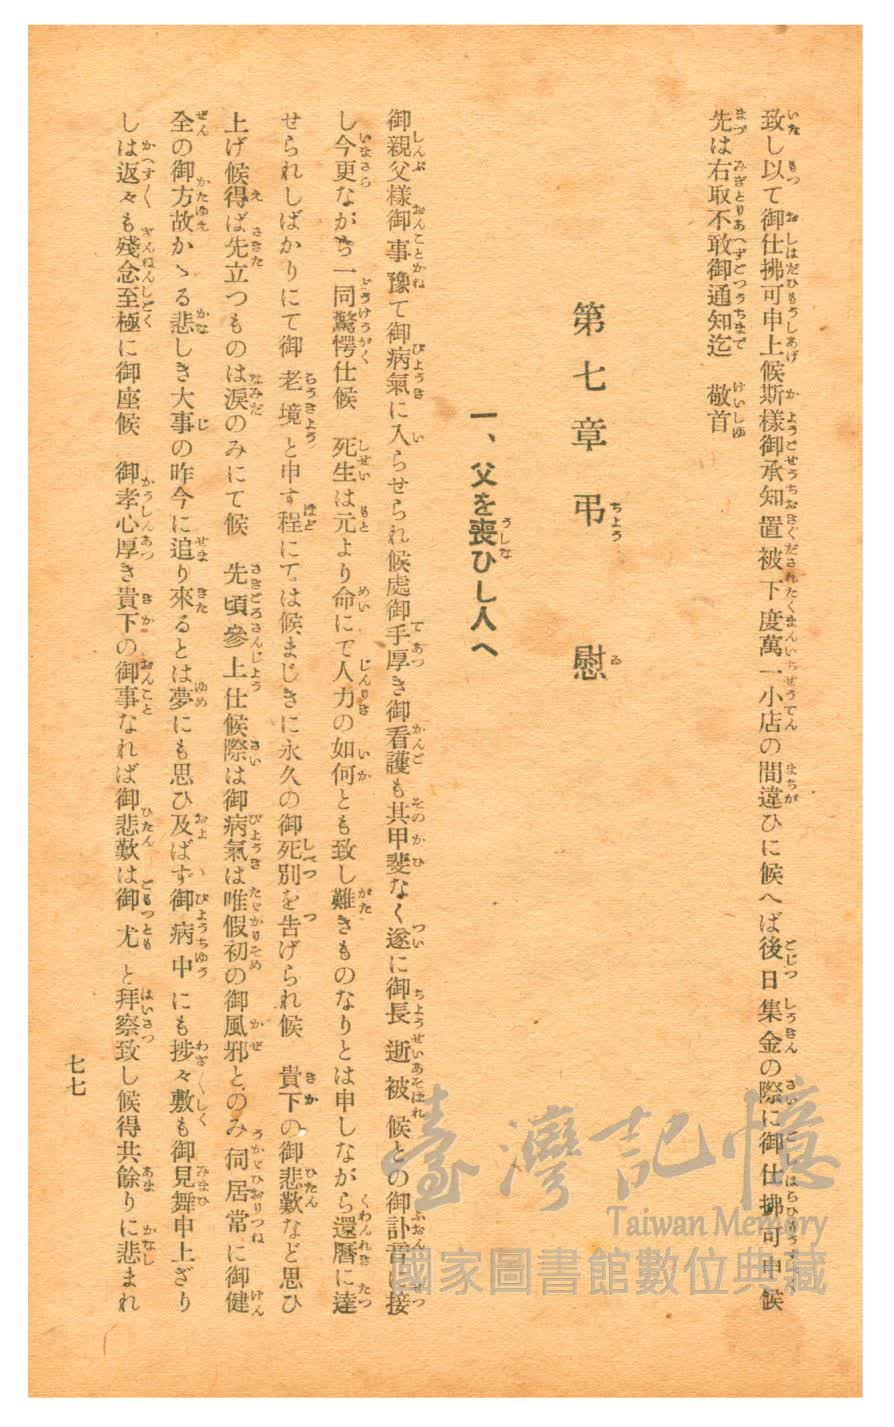 致し以て御仕拂可申上候斯樣御承知置被下度萬一小店の間違ひに候へば後日集金の際に御仕拂可申候
先は右取不敢御通知迄　敬首
第七章　弔慰
一、父を喪ひし人へ
御親父樣御事豫て御病氣に入らせられ候處御手厚き御看護も其甲斐なく遂に御長逝被候との御訃音に接
し今更ながら一同驚愕仕候　死生は元より命にて人力の如何とも致し難きものなりとは申しながら還曆に達
せられしばかりにて御老境と申す程にては候まじきに永久の御死別を告げられ候　貴下の御悲歎など思ひ
上げ候得ば先立つものは涙のみにて候　先頃參上仕候際は御病氣は唯假初の御風邪とのみ伺居常に御健
全の御方故かゝる悲しき大事の昨今に追り來るとは夢にも思ひ及ばず御病中にも捗々敷も御見舞申上ざり
しは返々も殘念至極に御座候　御孝心厚き貴下の御事なれば御悲歎は御尤と拜察致し候得共餘りに悲まれ
七七
臺灣記憶
Taiwan Memory
國家圖書館數位典藏